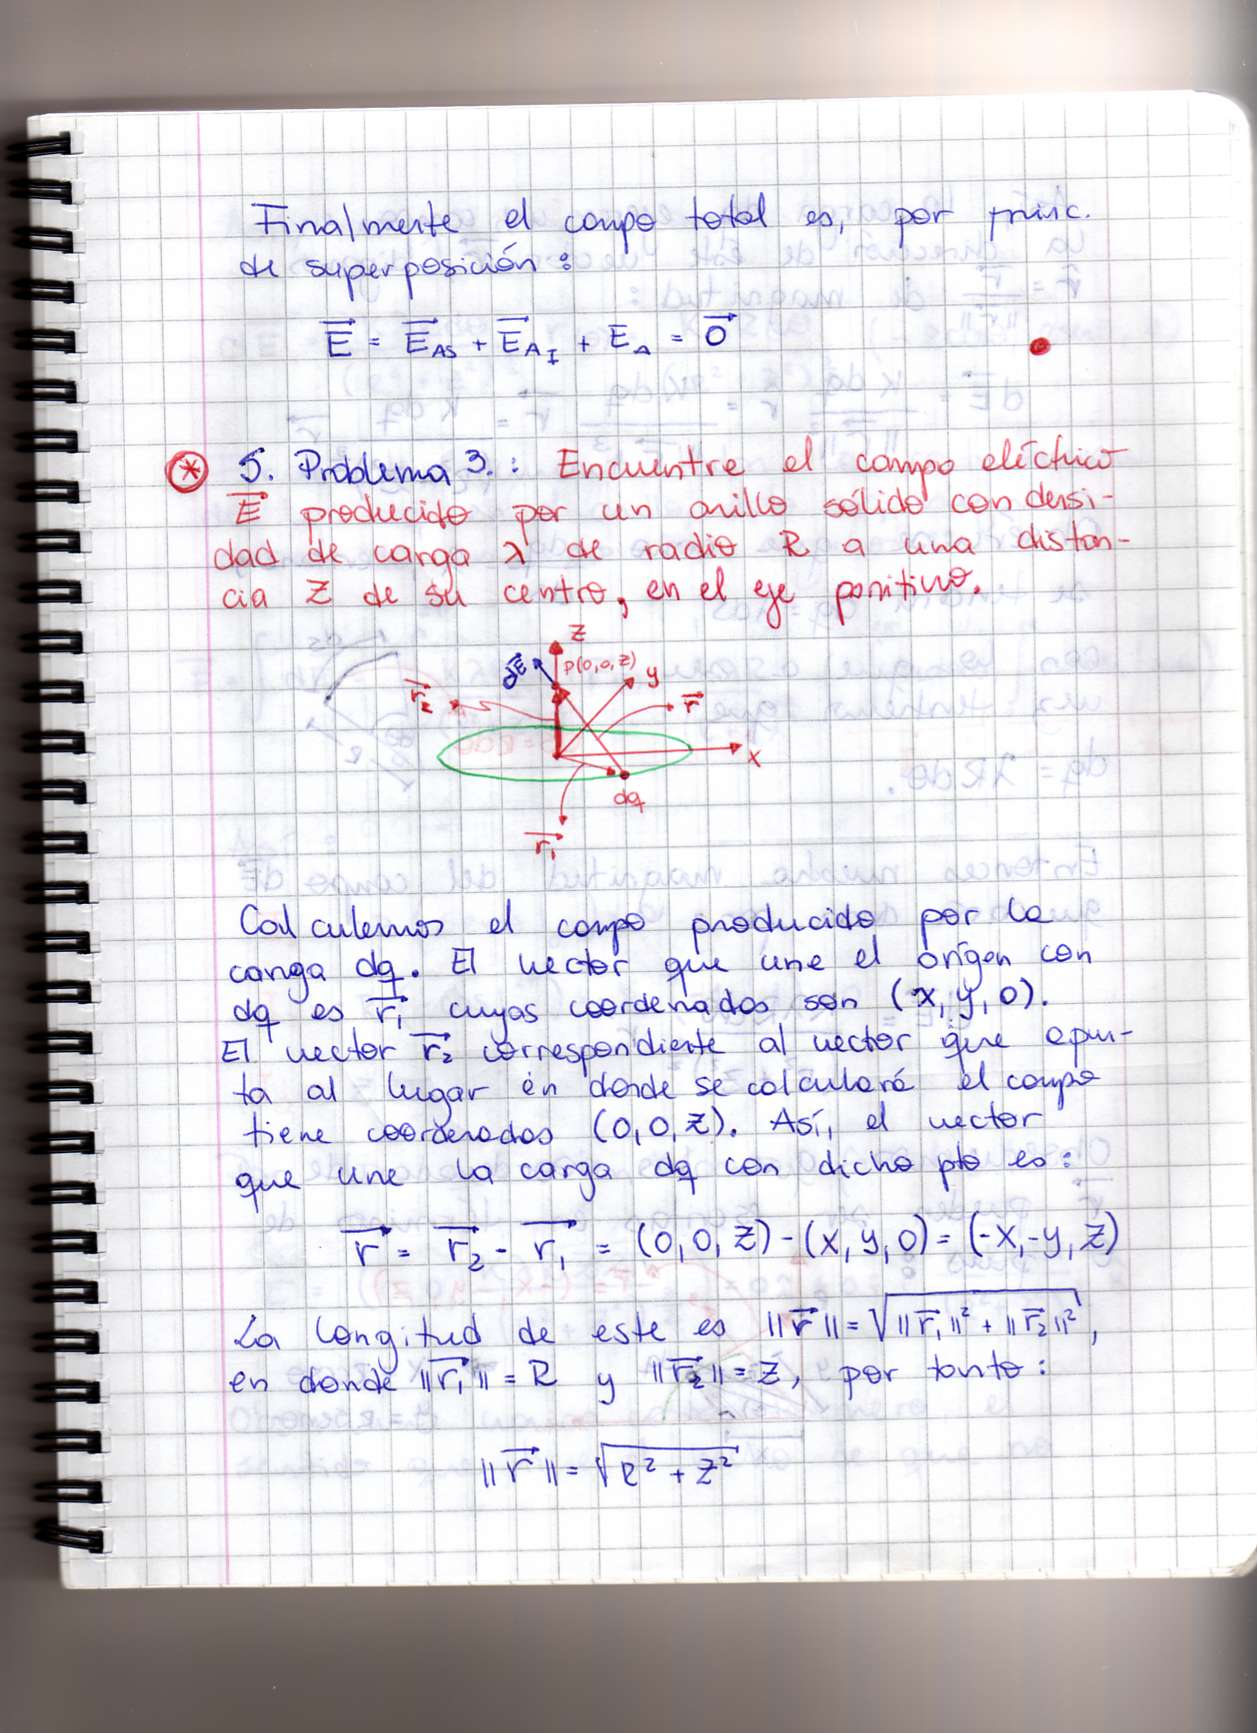 Finalmente el campo total es, por princ.
de superposición:
E⃗ = E⃗_AS + E⃗_AI + E_A = 0⃗
* 5. Problema 3.: Encuentre el campo eléctrico
E⃗ producido por un anillo sólido con densi-
dad de carga λ de radio R a una distan-
cia Z de su centro, en el eje positivo.
Z
dE⃗ P(0,0,Z) y
r⃗₂ r⃗
x
dq
r⃗₁
Calculemos el campo producido por la
carga dq. El vector que une el origen con
dq es r⃗₁ cuyas coordenadas son (x, y, 0).
El vector r⃗₂ correspondiente al vector que apun-
ta al lugar en donde se calculará el campo
tiene coordenadas (0,0,Z). Así, el vector
que une la carga dq con dicho pto es:
r⃗ = r⃗₂ - r⃗₁ = (0,0,Z) - (x,y,0) = (-x,-y,Z)
La longitud de este es ||r⃗|| = √(||r⃗₁||² + ||r⃗₂||²),
en donde ||r⃗₁|| = R y ||r⃗₂|| = Z, por tanto:
||r⃗|| = √(R² + Z²)